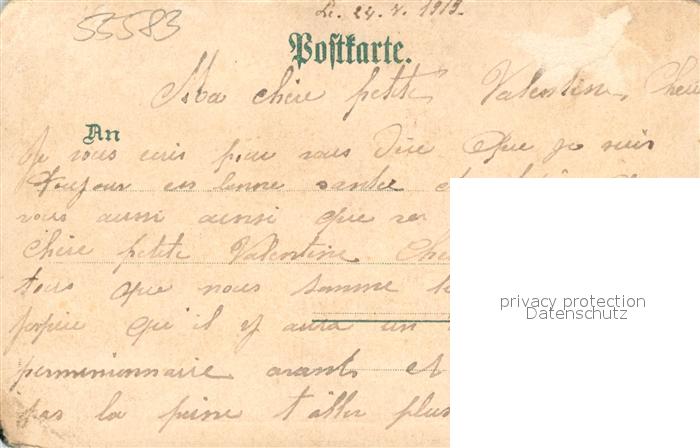 55583
Le. 24. 7. 1919.
Postkarte.
Ma chère petite Valentine, Cheri
An
Je vous ecris pour vous dire Que je suis
Toujour en bonne santée et
vous aussi ainsi que
Chere petite Valentine
tous que nous somme
qu'il y aura un
permissionnaire avant et
pas la peine t'aller plus
privacy protection
Datenschutz